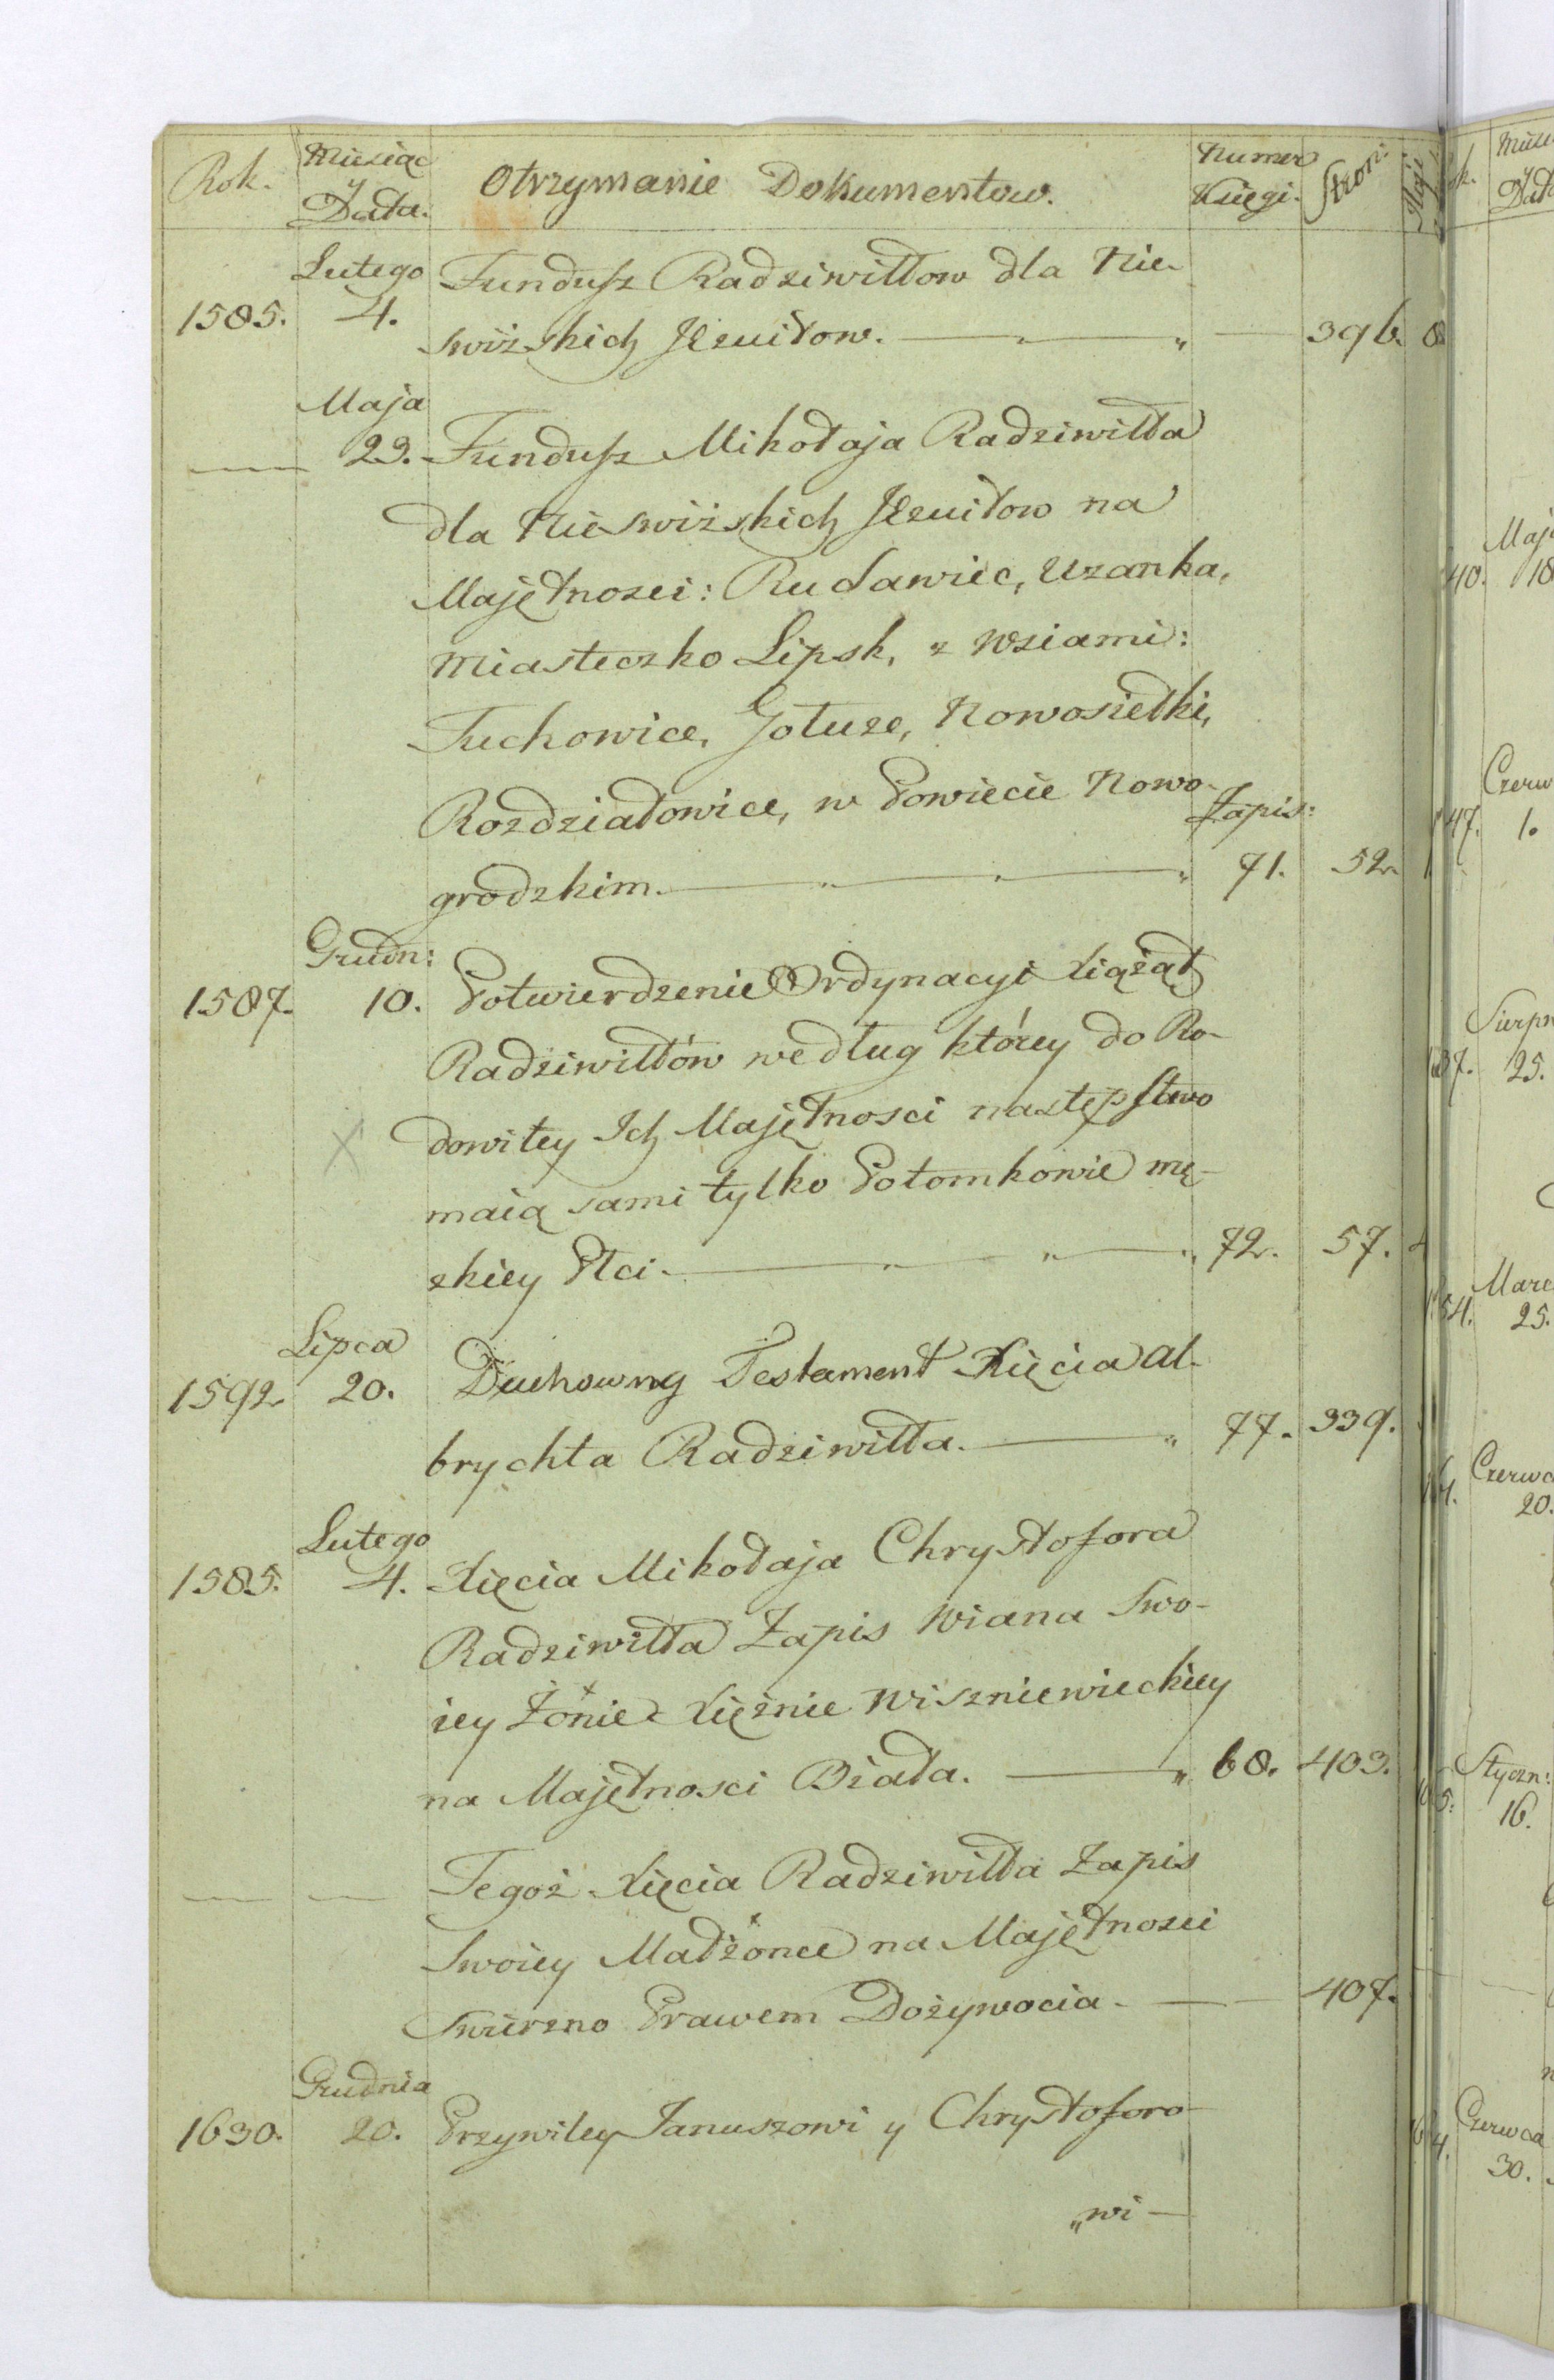 Rok. Miesiąc y Data. Otrzymanie Dokumentow. Numer Księgi. Stron:
Lutego
1585. 4. Fundusz Radziwiłłow dla Nie-
swiżskich Jezuitow. — „ — 396. 8
Maja
— 23. Fundusz Mikołaja Radziwiłła
dla Nieswiżskich Jezuitow na
Majętnosci: Rudawiec, Uzanka,
Miasteczko Lipsk, z Wsiami:
Tuchowice, Jotuze, Nowosiełki,
Rozdziałowice, w Powiecie Nowo-
Zapis:
grodzkim. — „ — „ — „ 71. 52.
Grudn:
1587. 10. Potwierdzenie Ordynacyi Xiążąt
Radziwiłłów według którey do Ro-
dowitey Ich Majętnosci następstwo
maią sami tylko Potomkowie mę-
zkiey Płci. — „ — „ — „ 72. 57.
Lipca
1592. 20. Duchowny Testament Xięcia Al-
brychta Radziwiłła. — „ 77. 339.
Lutego
1585. 4. Xięcia Mikołaja Chrystofora
Radziwiłła Zapis Wiana Swo-
iey Żonie Xiężnie Wiszniewieckiey
na Majętnosci Biała. — „ 68. 403.
— — Tegoż Xięcia Radziwiłła Zapis
Swoiey Małżonce na Majętnosci
Swierzno Prawem Dożywocia. — — 407.
Grudnia
1630. 20. Przywiley Januszowi y Chrystoforo-
„wi —
Maja
40. 18
Czerw
47. 1.
Sierpn
37. 25.
Marc
54. 25.
Czerwc
20.
Styczn:
5. 16.
Czerwca
4. 30.